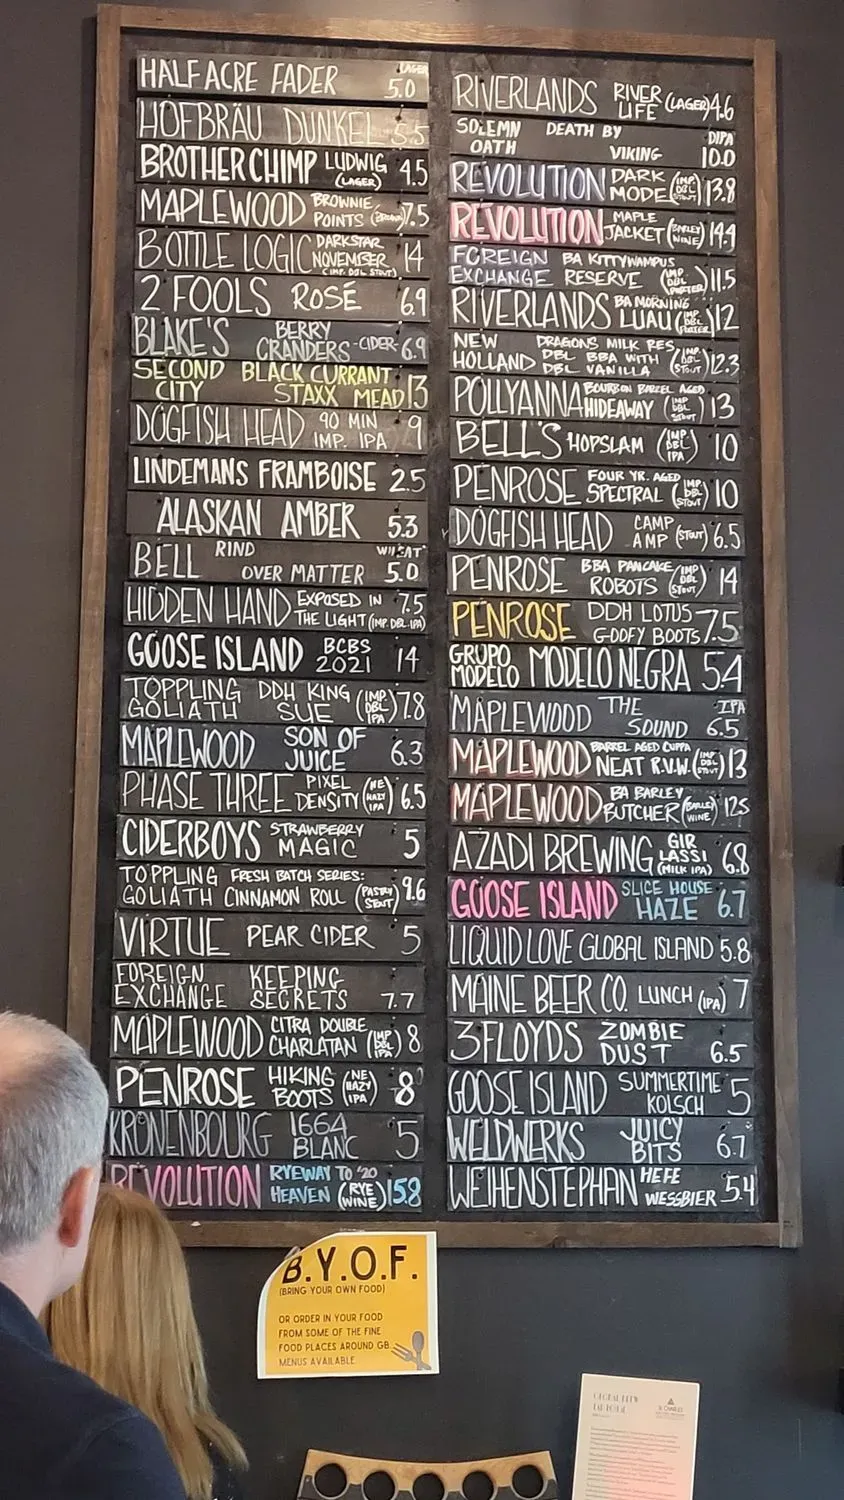 HALF ACRE FADER LAGER 5.0
HOFBRÄU DUNKEL 5.5
BROTHER CHIMP LUDWIG (LAGER) 4.5
MAPLEWOOD BROWNIE POINTS (BROWN) 7.5
BOTTLE LOGIC DARKSTAR NOVEMBER (IMP. DBL STOUT) 14
2 FOOLS ROSÉ 6.9
BLAKE'S BERRY CRANDERS -CIDER- 6.9
SECOND CITY BLACK CURRANT STAXX MEAD 13
DOGFISH HEAD 90 MIN IMP. IPA 9
LINDEMANS FRAMBOISE 2.5
ALASKAN AMBER 5.3
BELL RIND OVER MATTER WHEAT 5.0
HIDDEN HAND EXPOSED IN THE LIGHT (IMP. DBL. IPA) 7.5
GOOSE ISLAND BCBS 2021 14
TOPPLING GOLIATH DDH KING SUE (IMP DBL IPA) 7.8
MAPLEWOOD SON OF JUICE 6.3
PHASE THREE PIXEL DENSITY (NE HAZY IPA) 6.5
CIDERBOYS STRAWBERRY MAGIC 5
TOPPLING GOLIATH FRESH BATCH SERIES: CINNAMON ROLL (PASTRY STOUT) 9.6
VIRTUE PEAR CIDER 5
FOREIGN EXCHANGE KEEPING SECRETS 7.7
MAPLEWOOD CITRA DOUBLE CHARLATAN (IMP DBL IPA) 8
PENROSE HIKING BOOTS (NE HAZY IPA) 8
KRONENBOURG 1664 BLANC 5
REVOLUTION RYEWAY TO '20 HEAVEN (RYE WINE) 15.8
RIVERLANDS RIVER LIFE (LAGER) 4.6
SOLEMN OATH DEATH BY VIKING DIPA 10.0
REVOLUTION DARK MODE (IMP DBL STOUT) 13.8
REVOLUTION MAPLE JACKET (BARLEY WINE) 14.4
FOREIGN EXCHANGE BA KITTYWAMPUS RESERVE (IMP DBL PORTER) 11.5
RIVERLANDS BA MORNING LUAU (IMP DBL PORTER) 12
NEW HOLLAND DRAGONS MILK RES DBL BBA WITH DBL VANILLA (IMP DBL STOUT) 12.3
POLLYANNA BOURBON BARREL AGED HIDEAWAY (IMP DBL STOUT) 13
BELL'S HOPSLAM (IMP DBL IPA) 10
PENROSE FOUR YR. AGED SPECTRAL (IMP DBL STOUT) 10
DOGFISH HEAD CAMP AMP (STOUT) 6.5
PENROSE BBA PANCAKE ROBOTS (IMP DBL STOUT) 14
PENROSE DDH LOTUS GOOFY BOOTS 7.5
GRUPO MODELO MODELO NEGRA 5.4
MAPLEWOOD THE SOUND IPA 6.5
MAPLEWOOD BARREL AGED CUPPA NEAT R.V.W. (IMP DBL STOUT) 13
MAPLEWOOD BA BARLEY BUTCHER (BARLEY WINE) 12.5
AZADI BREWING GIR LASSI (MILK IPA) 6.8
GOOSE ISLAND SLICE HOUSE HAZE 6.7
LIQUID LOVE GLOBAL ISLAND 5.8
MAINE BEER CO. LUNCH (IPA) 7
3 FLOYDS ZOMBIE DUST 6.5
GOOSE ISLAND SUMMERTIME KOLSCH 5
WELDWERKS JUICY BITS 6.7
WEIHENSTEPHAN HEFE WESSBIER 5.4
B.Y.O.F.
(BRING YOUR OWN FOOD)
OR ORDER IN YOUR FOOD
FROM SOME OF THE FINE
FOOD PLACES AROUND GB.
MENUS AVAILABLE